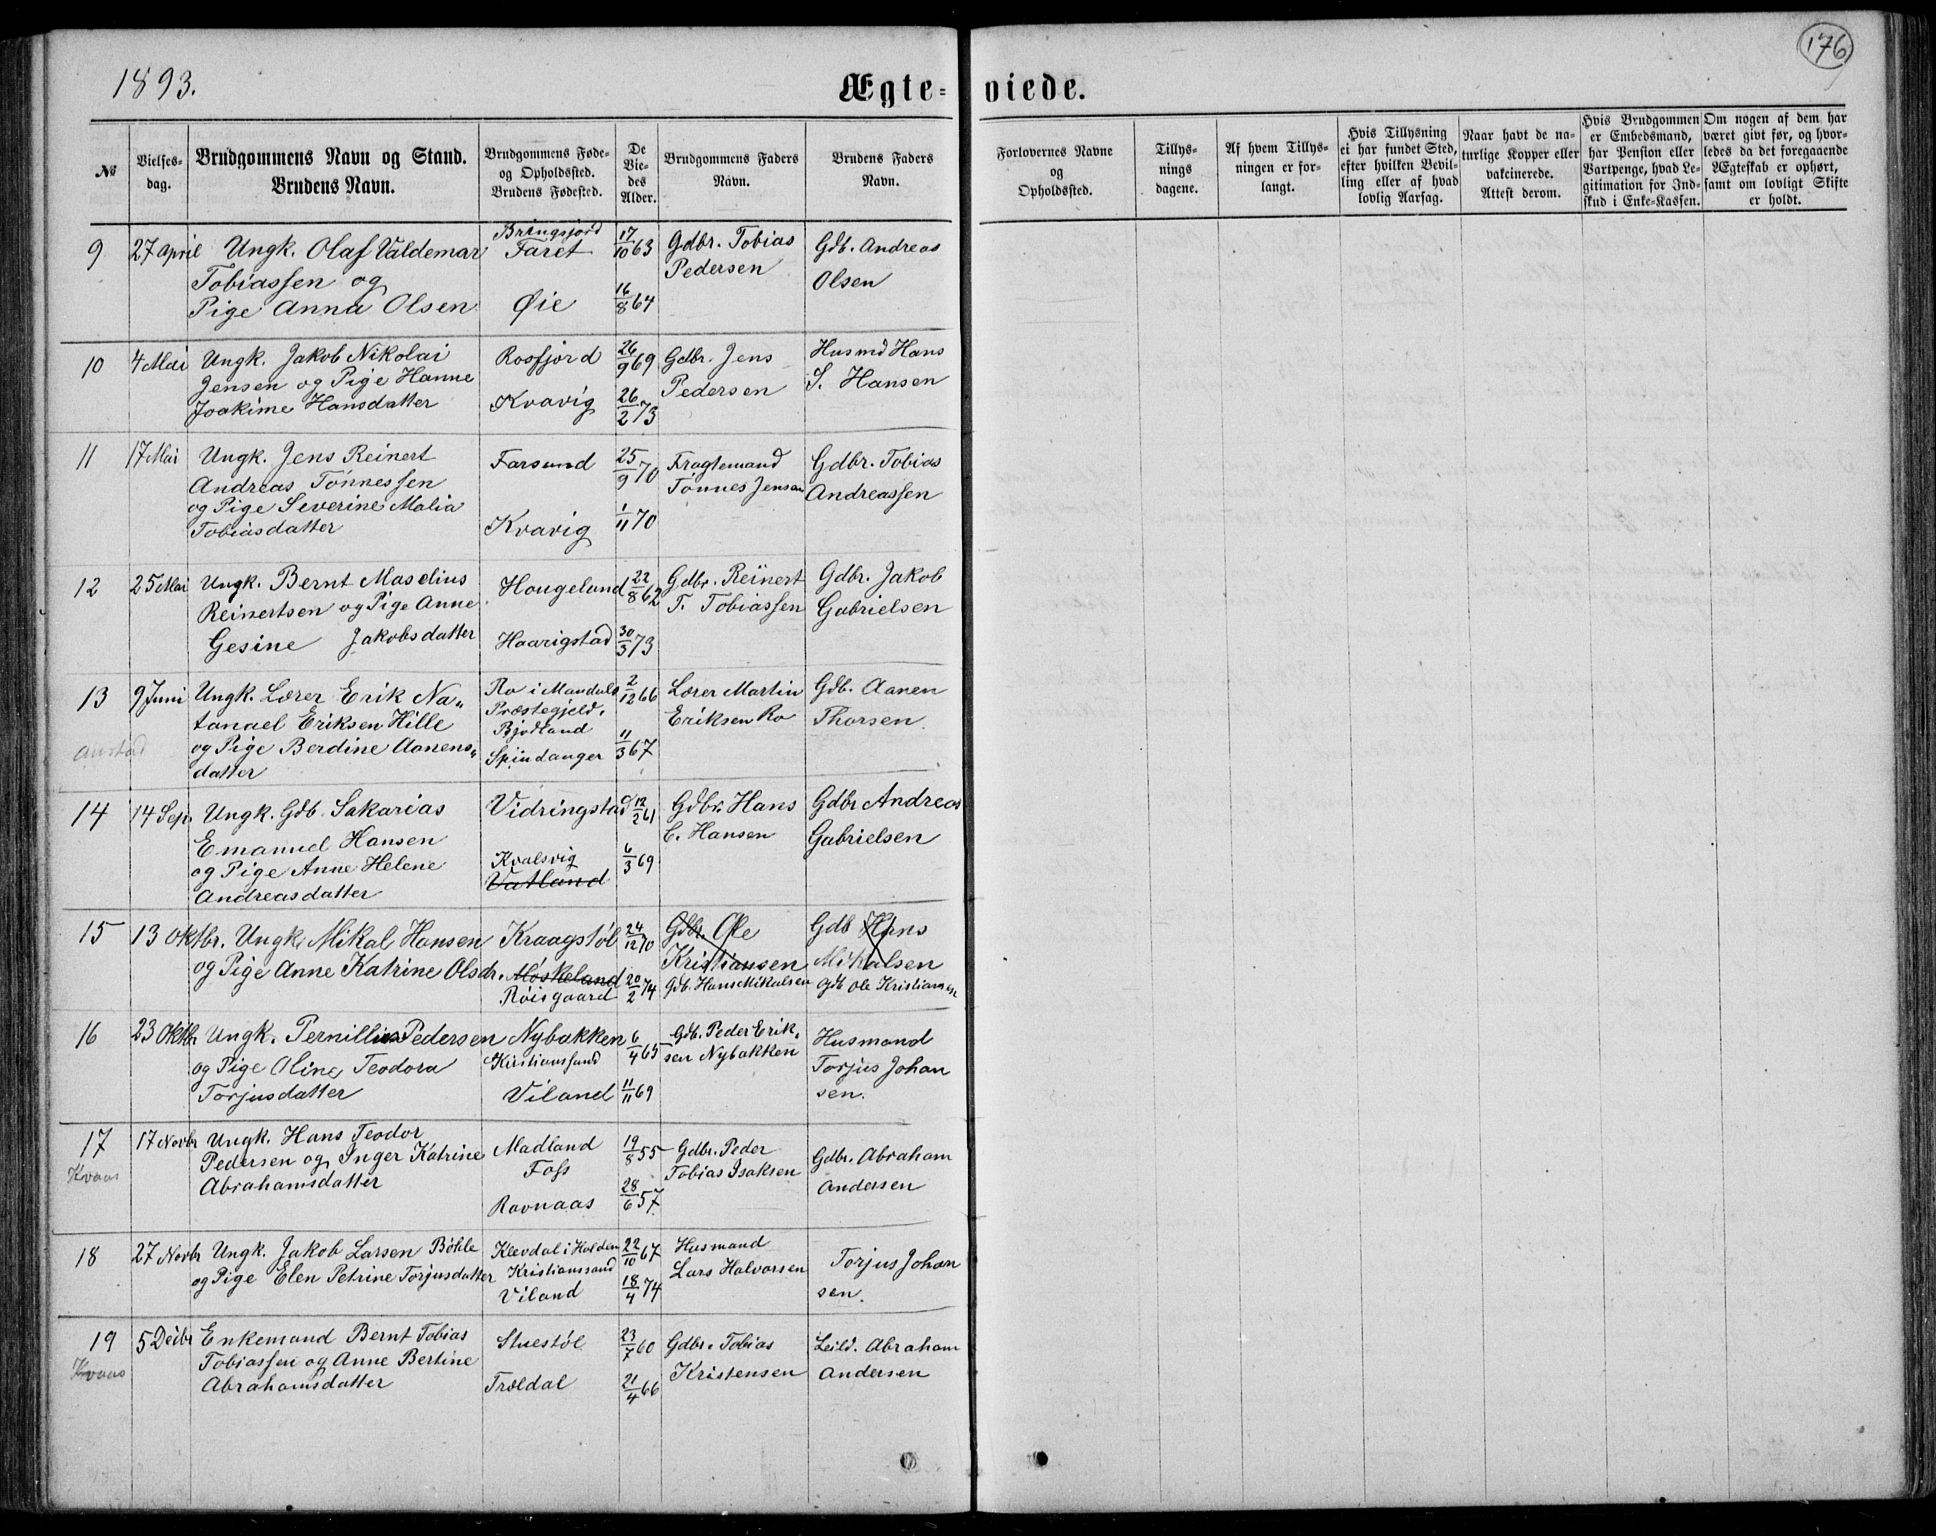 1893.
Ægte-
viede.
176
№
Vielses-
dag.
Brudgommens Navn og Stand.
Brudens Navn.
Brudgommens Føde-
og Opholdssted.
Brudens Fødested.
De
Vie-
des
Alder.
Brudgommens Faders
Navn.
Brudens Faders
Navn.
Forlovernes Navne
og
Opholdssted.
Tillys-
nings
dagene.
Af hvem Tillys-
ningen er for-
langt.
Hvis Tillysning
ei har fundet Sted,
efter hvilken Bevil-
ling eller af hvad
lovlig Aarsag.
Naar havt de na-
turlige Kopper eller
vakcinerede.
Attest derom.
Hvis Brudgommen
er Embedsmand,
har Pension eller
Vartpenge, hvad Le-
gitimation for Ind-
skud i Enke-Kassen.
Om nogen af dem har
været givt før, og hvor-
ledes da det foregaaende
Ægteskab er ophørt,
samt om lovligt Skifte
er holdt.
9 27 April Ungk. Olaf Valdemar
Tobiassen og
Pige Anna Olsen
Bringsjord
Faret
Øie
17/10 63
16/8 64
Gdbr. Tobias
Pedersen
Gdb. Andreas
Olsen
10 4 Mai Ungk. Jakob Nikolai
Jensen og Pige Hanne
Joakime Hansdatter
Rosfjord
Kvavig
26/9 69
26/2 73
Gdbr. Jens
Pedersen
Husmd Hans
S. Hansen
11 17 Mai Ungk. Jens Reinert
Andreas Tönnessen
og Pige Severine Malia
Tobiasdatter
Farsund
Kvavig
25/9 70
1/11 70
Fragtemand
Tönnes Jensen
Gdbr. Tobias
Andreassen
12 25 Mai Ungk. Bernt Maselius
Reinertsen og Pige Anne
Gesine Jakobsdatter
Hougeland
Haarigstad
22/8 62
30/3 73
Gdbr. Reinert
T. Tobiassen
Gdbr. Jakob
Gabrielsen
13 9 Juni Ungk. Lærer Erik Na„
tanael Eriksen Hille
og Pige Berdine Aanens„
datter
anstad
Ro i Mandals
Præstegjeld.
Bjodland
Spindanger
2/12 66
11/3 67
Lærer Martin
Eriksen Ro
Gdb. Aanen
Thorsen
14 14 Sep. Ungk. Gdb. Sakarias
Emanuel Hansen
og Pige Anne Helene
Andreasdatter
Vidringstad
Kvalsvig
Vatland
12/2 61
6/3 69
Gdbr. Hans
C. Hansen
Gdbr Andreas
Gabrielsen
15 13 Oktbr. Ungk. Mikal Hansen
og Pige Anne Katrine Olsdr.
Kraagstøl
Möskeland
Röisgaard
24/12 70
20/2 74
Gdbr. Ole
Kristiansen
Gdb. Hans Mikalsen
Gdb Hans
Mikalsen
Gdb Ole Kristiansen
16 23 Oktbr Ungk. Pernillius Pedersen
og Pige Oline Teodora
Torjusdatter
Nybakken
Kristianssand
Viland
6/4 65
11/11 69
Gdb. Peder Erik„
sen Nybakken
Husmand
Torjus Johan
sen.
17 17 Novbr Ungk. Hans Teodor
Pedersen og Inger Katrine
Abrahamsdatter
Kvaas
Madland
Foss
Ravnaas
19/8 55
28/6 57
Gdbr. Peder
Tobias Isaksen
Gdbr. Abraham
Andersen
18 27 Novbr Ungk. Jakob Larsen Böhle
og Pige Elen Petrine Torjusdatter
Klevdal i Holden
Kristianssand
Viland
22/10 67
18/4 74
Husmand
Lars Halvorsen
Torjus Johan
sen.
19 5 Decbr Enkemand Bernt Tobias
Tobiassen og Anne Bertine
Abrahamsdatter
Kvaas
Stuestøl
Trældal
23/7 60
21/4 66
Gdbr. Tobias
Kristensen
Leild. Abraham
Andersen